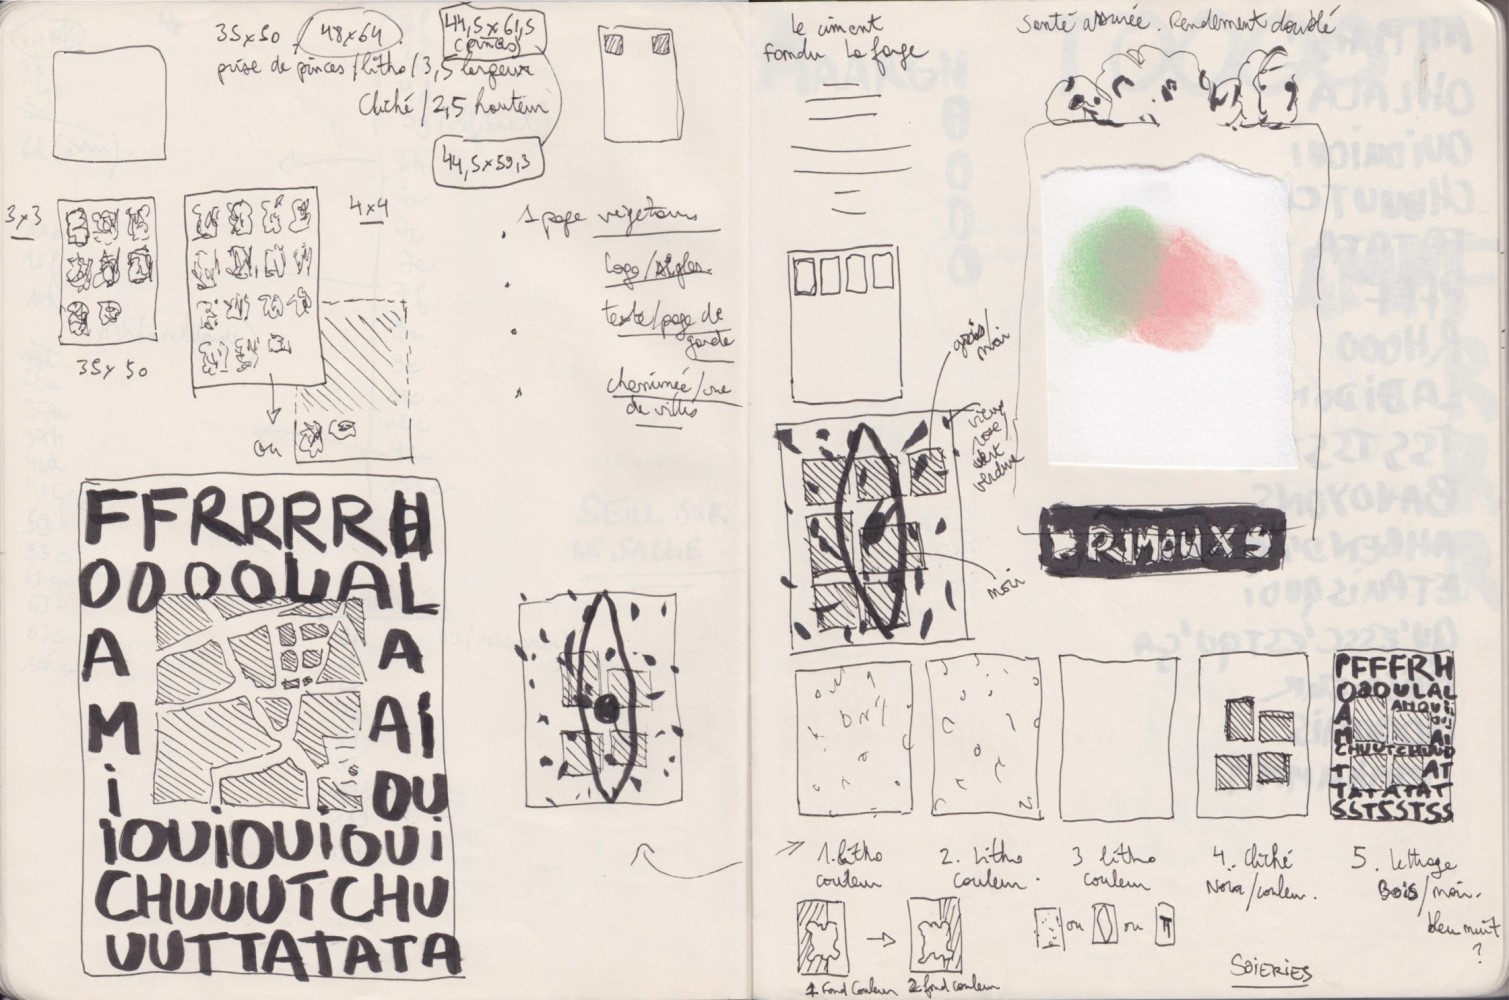 35x50 / 48x64
44,5x61,5
(pinces)
prise de pinces / litho / 3,5 largeur
Cliché / 2,5 hauteur
44,5x59,3
3x3
4x4
35x50
ou
1 page végétaux
logo / sigles.
texte / page de
garde
cheminée / vue
de villes
FFRRRRH
OOOOLAL
A A
M Aï
i OU
iOUiOUiOUi
CHUUUTCHU
UUTTATATA
le ciment
fondu La farge
Santé assurée. Rendement doublé
gris/
noir
vieux
rose/
vert
verdure
noir
PFFFRH
OOOULAL
A
M Ai
CHUUTCHUUO
T AT
TATATAT
SSTSSTSS
1. litho
couleur
2. Litho
couleur.
3 litho
couleur
4. Cliché
/couleur.
5. Lettrage
Bois/noir.
bleu nuit
?
1 Fond couleur
2 fond couleur
ou
ou
SOIERIES